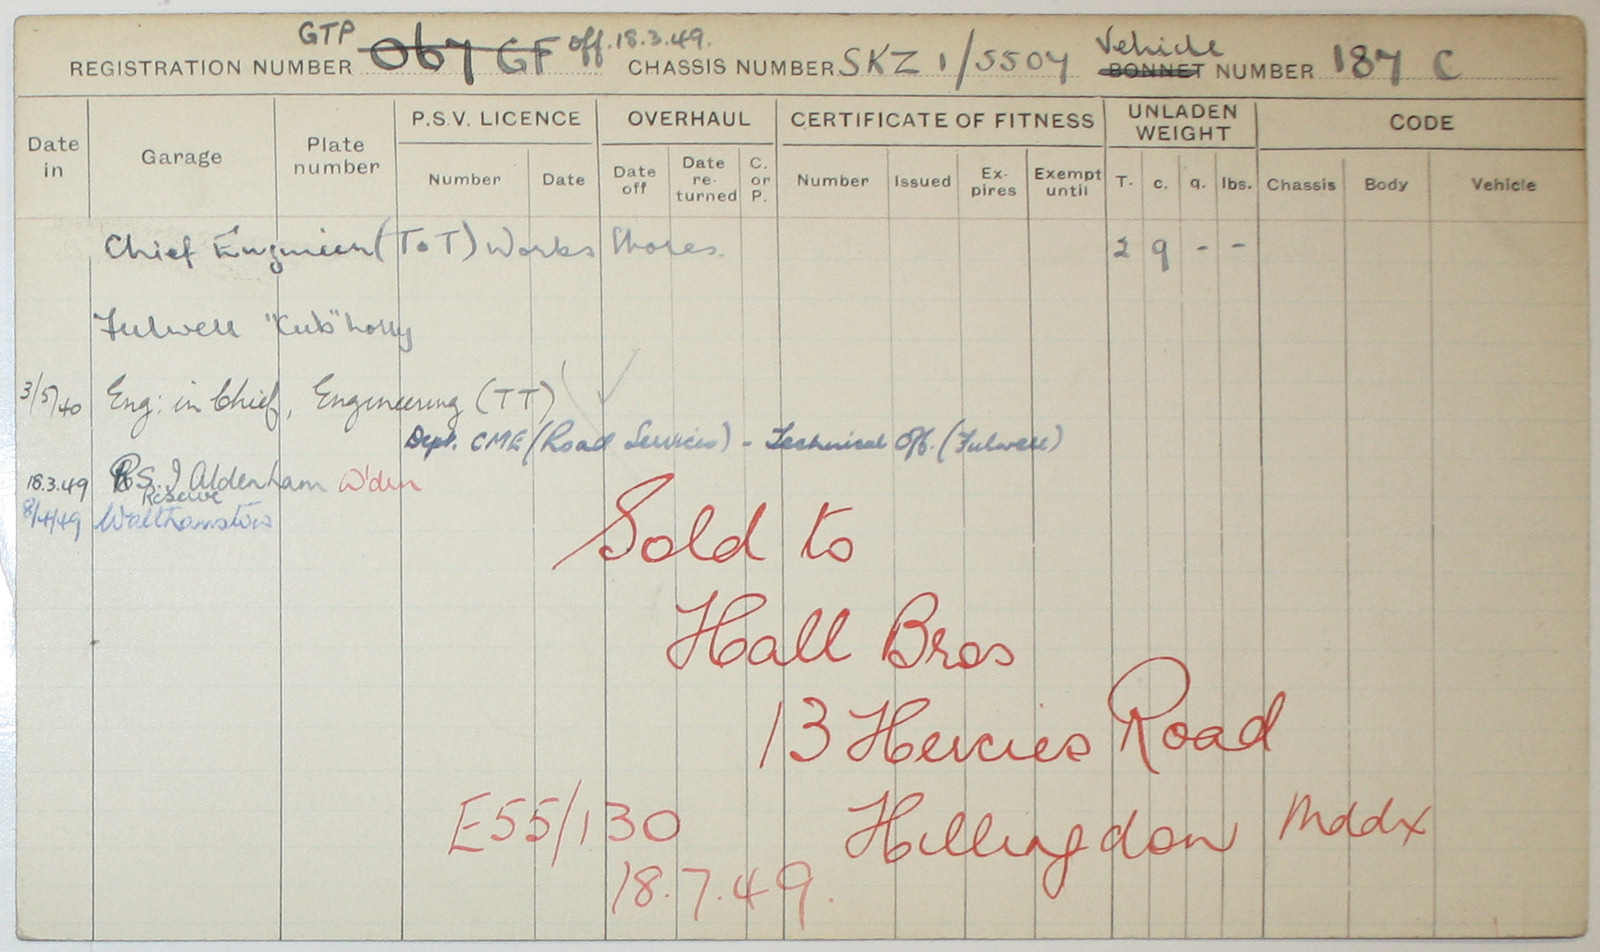 GTP
REGISTRATION NUMBER 067 GF off. 18.3.49. CHASSIS NUMBER SKZ 1/5504 Vehicle BONNET NUMBER 187 C
Date in Garage Plate number P.S.V. LICENCE OVERHAUL CERTIFICATE OF FITNESS UNLADEN WEIGHT CODE
Number Date Date off Date re-turned C. or P. Number Issued Ex-pires Exempt until T. c. q. lbs. Chassis Body Vehicle
Chief Engineer (ToT) Works Stores. 2 9 - -
Fulwell "Cub" Lorry
3/5/40 Eng: in Chief, Engineering (TT)
Dept. CME (Road Services) - Technical Off. (Fulwell)
18.3.49 Aldenham W'den
Reserve
8/4/49 Walthamstow
Sold to
Hall Bros
13 Hercies Road
E55/130 Hillingdon Mddx
18.7.49.